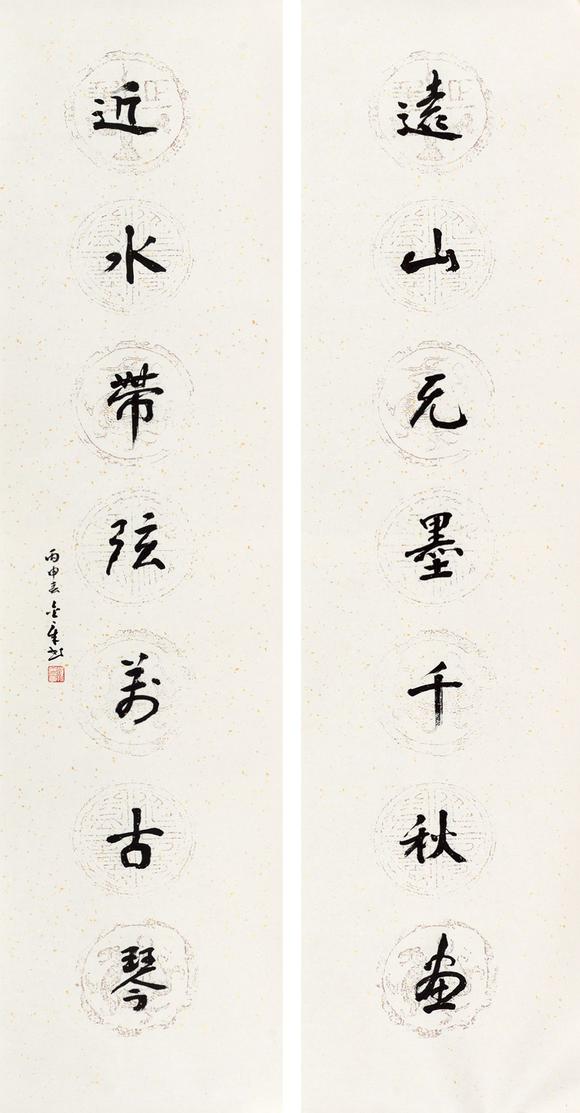 遠山无墨千秋畫
近水帶弦萬古琴
丙申春金